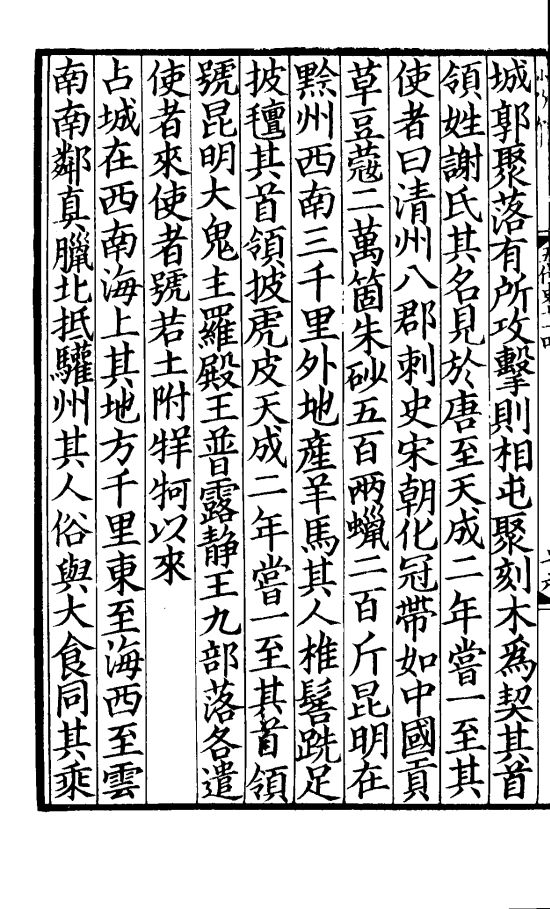 城郭聚落有所攻擊則相屯聚刻木爲契其首
領姓謝氏其名見於唐至天成二年嘗一至其
使者曰清州八郡刺史宋朝化冠帶如中國貢
草豆蔻二萬箇朱砂五百兩蠟二百斤昆明在
黔州西南三千里外地產羊馬其人椎髻跣足
披氊其首領披虎皮天成二年嘗一至其首領
號昆明大鬼主羅殿王普露静王九部落各遣
使者來使者號若土附牂牁以來
占城在西南海上其地方千里東至海西至雲
南南鄰真臘北抵驩州其人俗與大食同其乘